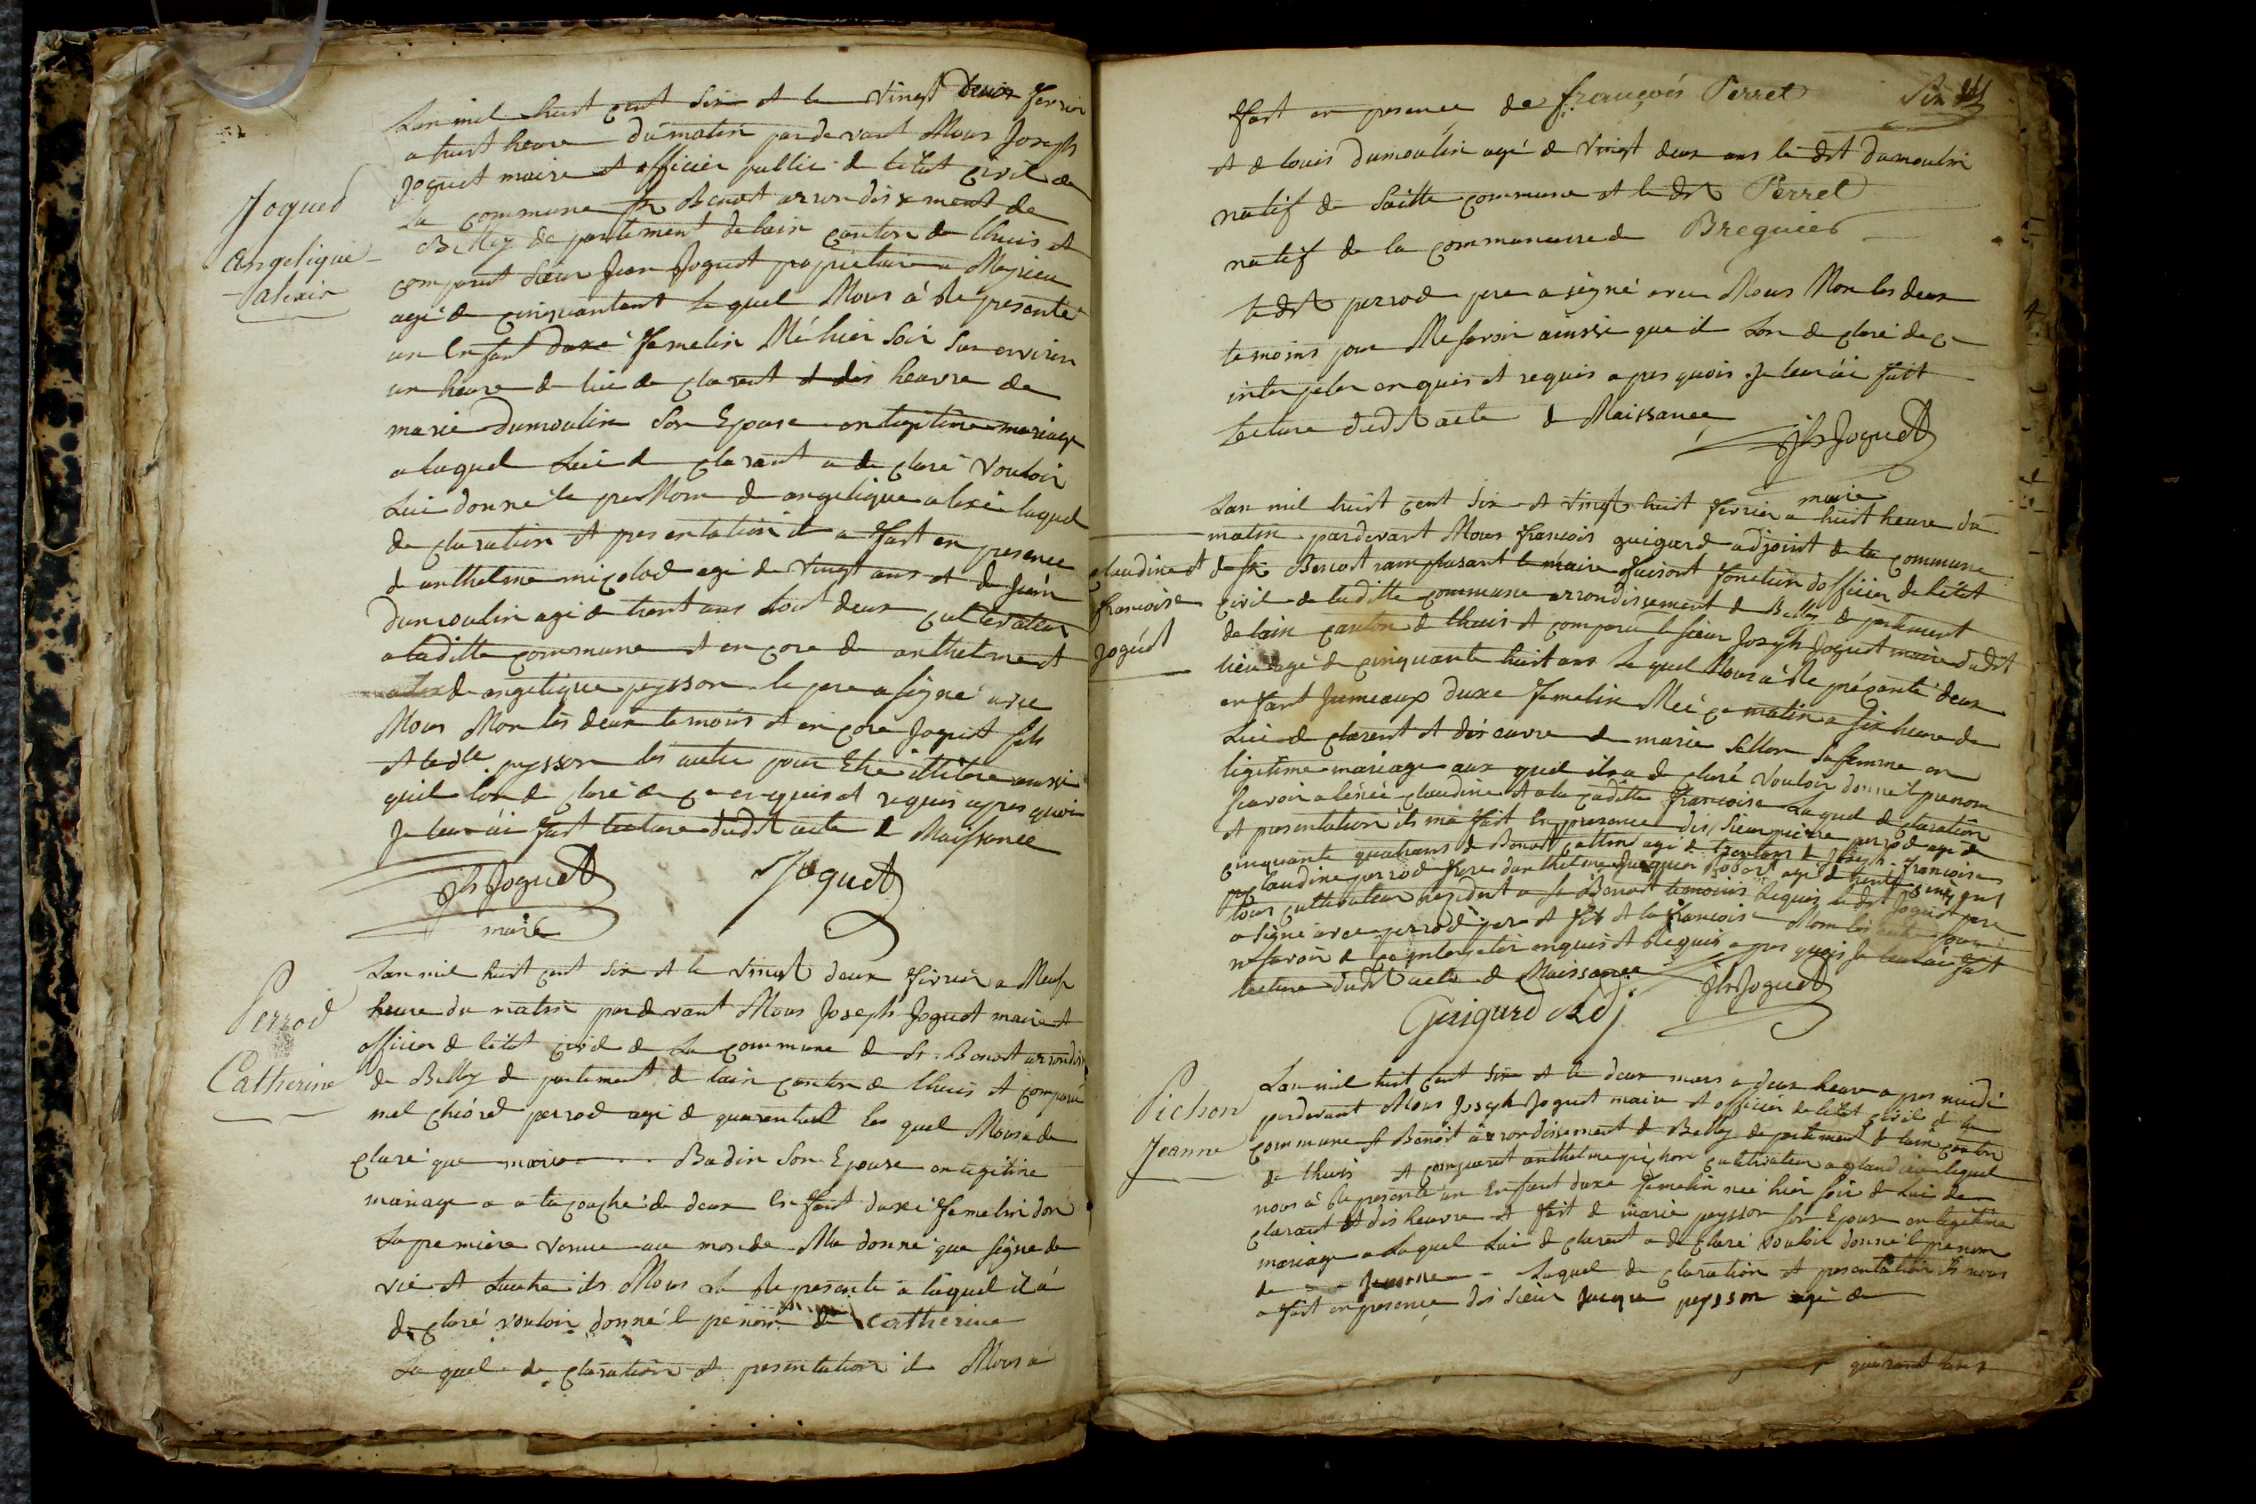 Joguet
angelique
alexis
Lan mil huit cent Six et le vingt deux fevrier
a huit heure du matin pardevant Nous Joseph
Joguet maire et officier public de letat civil de
La commune St Benoit arrondissement de
Belley departement de lain canton de lhuis et
comparut Sieur Jean Joguet propriétaire a
agé de cinquantent Lequel Nous à Re presente
un Enfant duxe femelin Né hier Soir Sur environ
un heure de lui de clarent et dis heuvre de
marie dumoulin Son Epouse en legitime mariage
a laquel Lui de clarant a de claré vouloir
Lui donné le preNom de angelique alexi laquel
de claration et presentation il a ffait en presence
d anthelme micolod agé de vingt ans et de Jean
Dumoulin agé de trent ans tout deux cultivateur
a laditte commune et en core de anthelme et
de angelique peysson le pere a signé avec
Nous Non les deux temoins et en core Joguet fils
et ledlle peysson les autre pour Etre illitere aussi
quil lon de claré de ce enquis et requis apres quoi
Je leur ài ffait lecture dudt acte de Naissance
Jh Joguet
Joguet
maire
Perrod
Catherine
Lan mil huit cent six et le vingt deux ffevrier a Neuf
heure du matin pardevant Nous Joseph Joguet maire et
officier de letat civil de La commune de St Benoit arrondis
de Belley de partement de lain canton de lhuis et comparu
mel chiored perrod agé de quarentent les quel Nous a de
claré que marie Badin Son Epouse en legitime
mariage a a la couché de deux En ffant duxe femelin don
La premiere venue au monde Na donné que signe de
vie et Lautre ils Nous La Re presente a laquel il à
de claré vouloir donné le penom de catherine
La quel de claration et presentation il Nous a
ffait en presence de françois Perret
Six
et de louis dumoulin agé de vingt deux ans le dt dumoulin
natif de Laditte commune et le dt Perret
natif de la commune de Bregnier
le dt perrod pere a signé avec Nous Non les deux
temoins pour Ne savoir ainssi que il Lon de claré de ce
inter peler enquis et requis apres quois Je leur ài ffait
Lecture dudt acte de Naissance
Jh Joguet
maire
claudine et
francoise
Joguet
Lan mil huit cent Six et vingt huit fevrier a huit heure du
matin pardevant Nous francois guigard adjoint de la commune
de St Benoit ramplasant le maire ffaisant fonction dofficier de letat
civil de laditte commune arrondissement de Belley de partement
de lain canton de lhuis et comparu le sieur Joseph Joguet maire dudt
lieu agé de cinquante huit ans Le quel Nous à Re présanté deux
enfant Jumeaux duxe femelin Neé ce matin a six heure de
Lui de clarent et dis euvre de marie Sellon Safemme en
legitime mariage aux quel ils a de claré vouloir donne l prenom
savoir a lénée claudine et a la caditte francoise Laquel de claration
et presentation ils ma ffait En presence dis Sieur pierre perrod agé de
cinquante quatrans de Benoit agé de trentans de Joseph francoise
claudine perrod frere danthelme Jacquin Robert agé de trente six ans
tous cultivateur resident a St Benoit temoins Requis le dt Joguet pere
a signé avec perrod pere et fils et la francoise Nom les autre pour
n savoir de ce interpeler enquis et Requis apres quois Je leur ai ffait
lecture dudt acte de Naissance
Jh Joguet
Guigard Adj
Pichon
Jeanne
Lan mil huit cent six et le deux mars a deux heure a pres midi
pardevant Nous Joseph Joguet maire et officier de letat civile de la
commune St Benoit arrondissement de Belley de partement de lain canton
de lhuis et comparut anthelme pichon cultivateur a glandieu lequel
nous à Re presenté un Enfant duxe femelin née hier soir de Lui de
clarant et dis heuvre et ffait de marie peysson son Epouse en legitime
mariage a Laquel Lui de clarent a de claré vouloir donné le prenom
de Jeanne Laquel de claration et presentation ils nous
a ffait en presence dis sieur Jacque peysson agé de
quarant ans